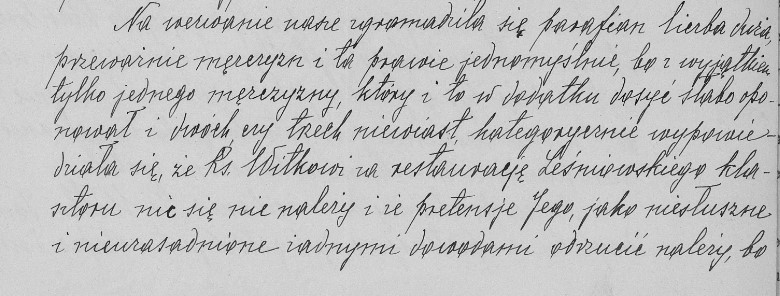 Na wezwanie nasze zgromadziła się parafian liczba duża,
przeważnie mężczyzn i ta prawie jednomyślnie, bo z wyjątkiem
tylko jednego mężczyzny, który i to w dodatku dosyć słabo opo-
nował i dwóch czy trzech niewiast, kategorycznie wypowie-
działa się, że Ks. Witkowi za restaurację Leśniowskiego kla-
sztoru nic się nie należy i że pretensje Jego, jako niesłuszne
i nieuzasadnione żadnymi dowodami odrzucić należy, bo